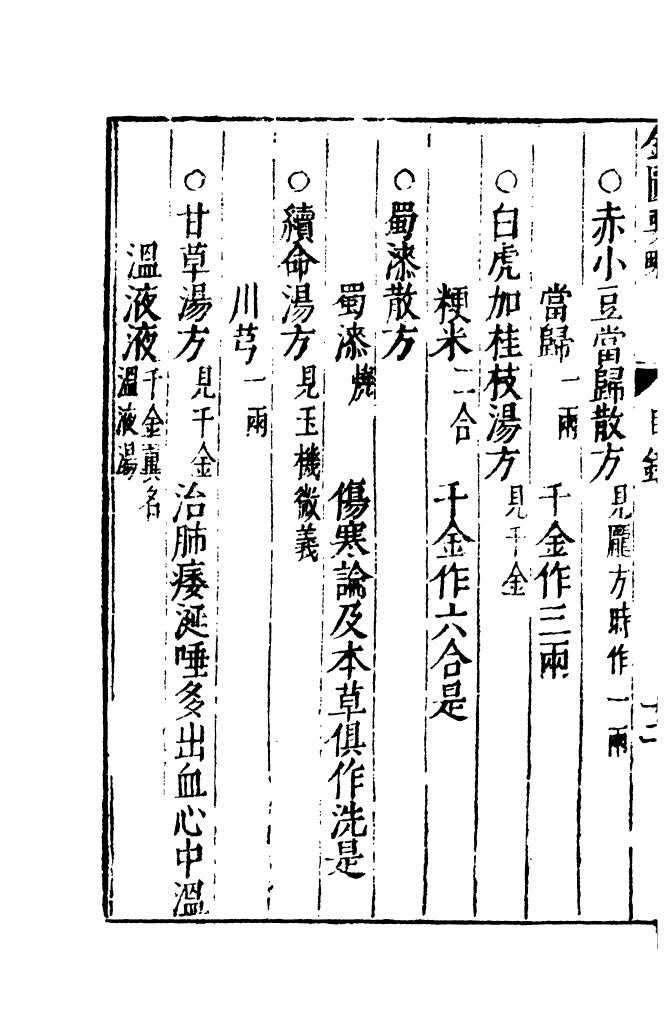 金匱要略 目錄 十二
○赤小豆當歸散方 見龐方時作一兩
當歸 一兩 千金作三兩
○白虎加桂枝湯方 見千金
粳米 二合 千金作六合是
○蜀漆散方
蜀漆 燒 傷寒論及本草俱作洗是
○續命湯方 見玉機微義
川芎 一兩
○甘草湯方 見千金 治肺痿涎唾多出血心中溫
溫液液 千金翼名
溫液湯